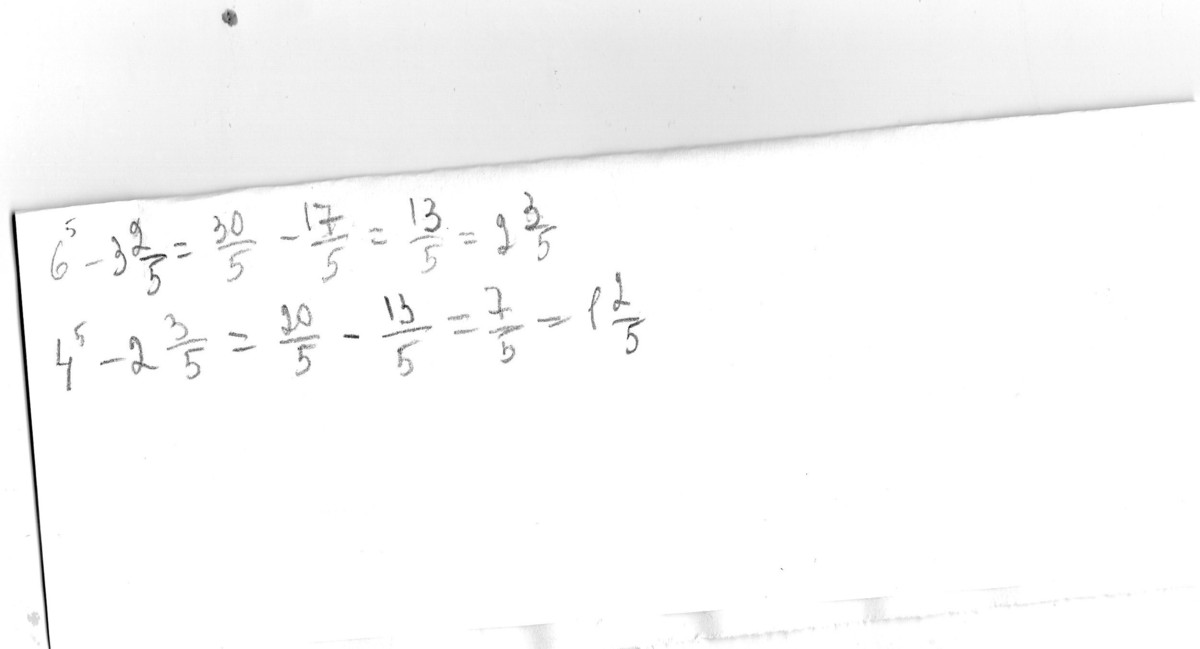 6⁵ - 3 2/5 = 30/5 - 17/5 = 13/5 = 2 3/5
4⁵ - 2 3/5 = 20/5 - 13/5 = 7/5 = 1 2/5